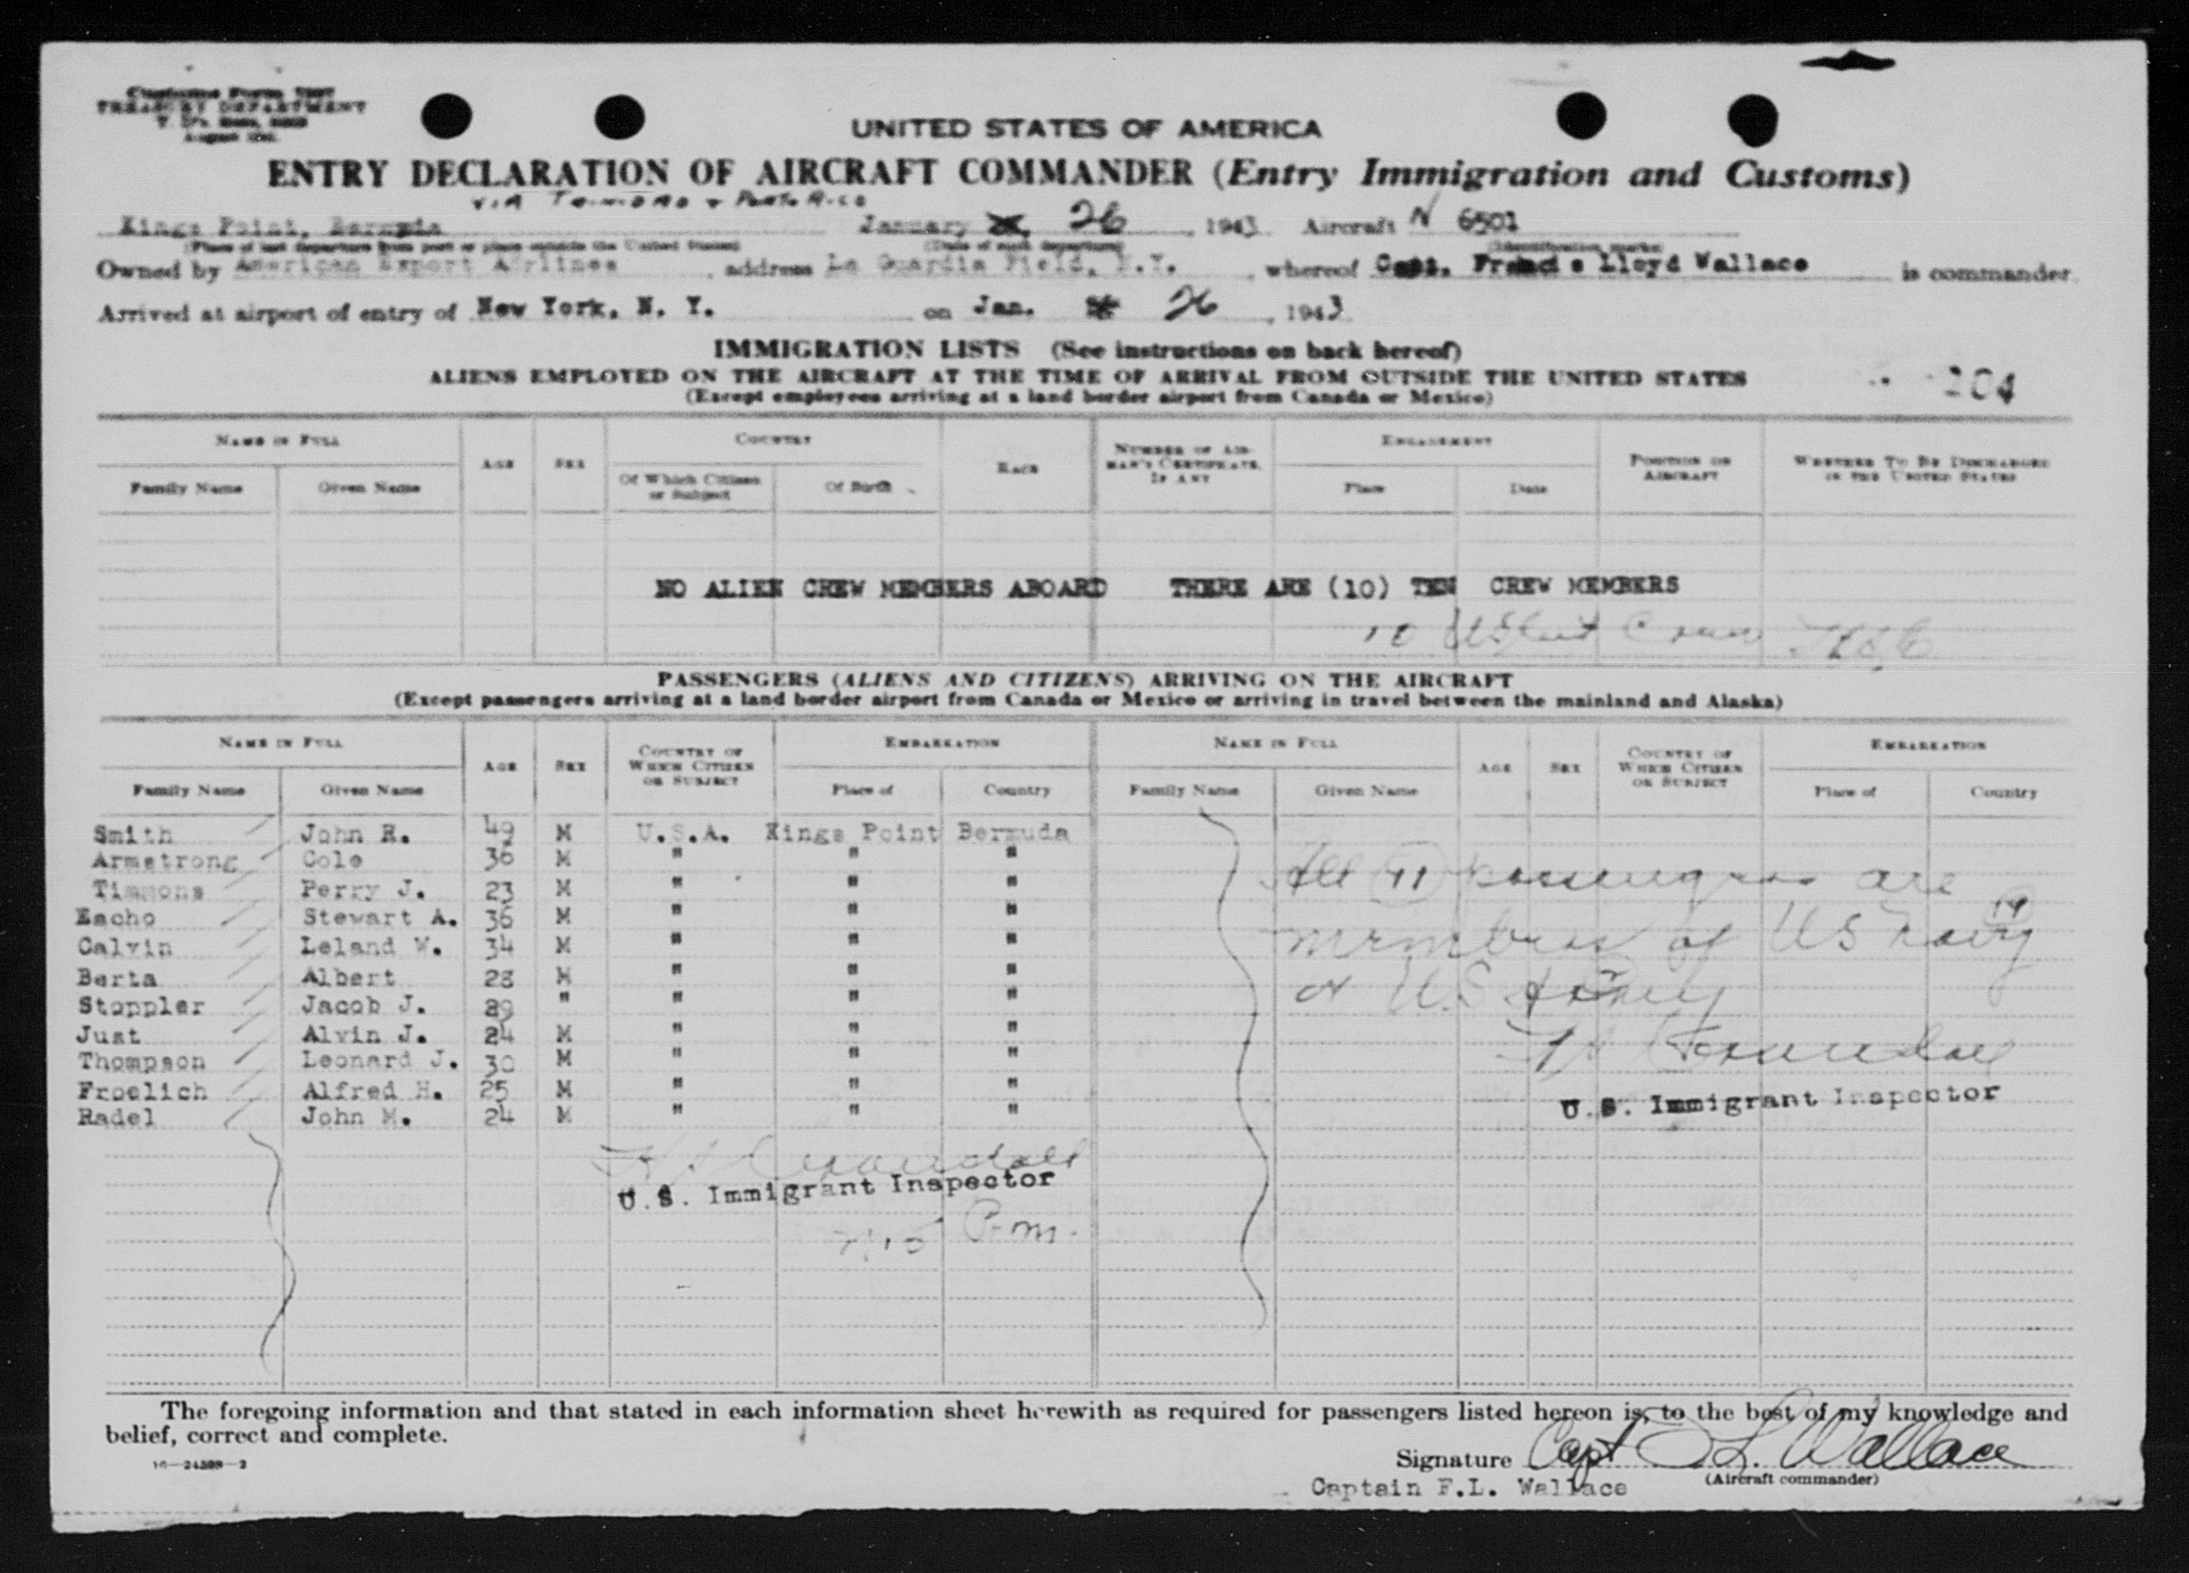 TREASURY DEPARTMENT
UNITED STATES OF AMERICA
ENTRY DECLARATION OF AIRCRAFT COMMANDER (Entry Immigration and Customs)
VIA TRINIDAD + PORTO RICO
Kings Point, January 26, 1943 Aircraft N 6501
(Place of last departure from port or place outside the United States) (Date of such departure) (Identification marks)
Owned by American Export Airlines, address La Guardia Field, N.Y., whereof Capt. Francis Lloyd Wallace is commander.
Arrived at airport of entry of New York, N. Y. on Jan. 26, 1943
IMMIGRATION LISTS (See instructions on back hereof)
ALIENS EMPLOYED ON THE AIRCRAFT AT THE TIME OF ARRIVAL FROM OUTSIDE THE UNITED STATES
204
(Except employees arriving at a land border airport from Canada or Mexico)
NAME IN FULL AGE SEX COUNTRY RACE NUMBER OF AIRMAN'S CERTIFICATE, IF ANY ENGAGEMENT POSITION ON AIRCRAFT WHETHER TO BE DISCHARGED IN THE UNITED STATES
Family Name Given Name Of Which Citizen or Subject Of Birth Place Date
NO ALIEN CREW MEMBERS ABOARD THERE ARE (10) TEN CREW MEMBERS
10 Crew
PASSENGERS (ALIENS AND CITIZENS) ARRIVING ON THE AIRCRAFT
(Except passengers arriving at a land border airport from Canada or Mexico or arriving in travel between the mainland and Alaska)
NAME IN FULL AGE SEX COUNTRY OF WHICH CITIZEN OR SUBJECT EMBARKATION NAME IN FULL AGE SEX COUNTRY OF WHICH CITIZEN OR SUBJECT EMBARKATION
Family Name Given Name Place of Country Family Name Given Name Place of Country
Smith John R. 49 M U.S.A. Kings Point Bermuda
Armstrong Cole 36 M " " "
Timmons Perry J. 23 M " " "
Eacho Stewart A. 36 M " " "
Calvin Leland W. 34 M " " "
Berta Albert 28 M " " "
Stoppler Jacob J. 29 " " " "
Just Alvin J. 24 M " " "
Thompson Leonard J. 30 M " " "
Froelich Alfred H. 25 M " " "
Radel John M. 24 M " " "
All 11 passengers are
members of US Navy
or U.S Army
Crandall
U.S. Immigrant Inspector
Crandall
U.S. Immigrant Inspector
P.m.
The foregoing information and that stated in each information sheet herewith as required for passengers listed hereon is, to the best of my knowledge and
belief, correct and complete.
16—24398-2
Signature Capt F L. Wallace
(Aircraft commander)
Captain F.L. Wallace